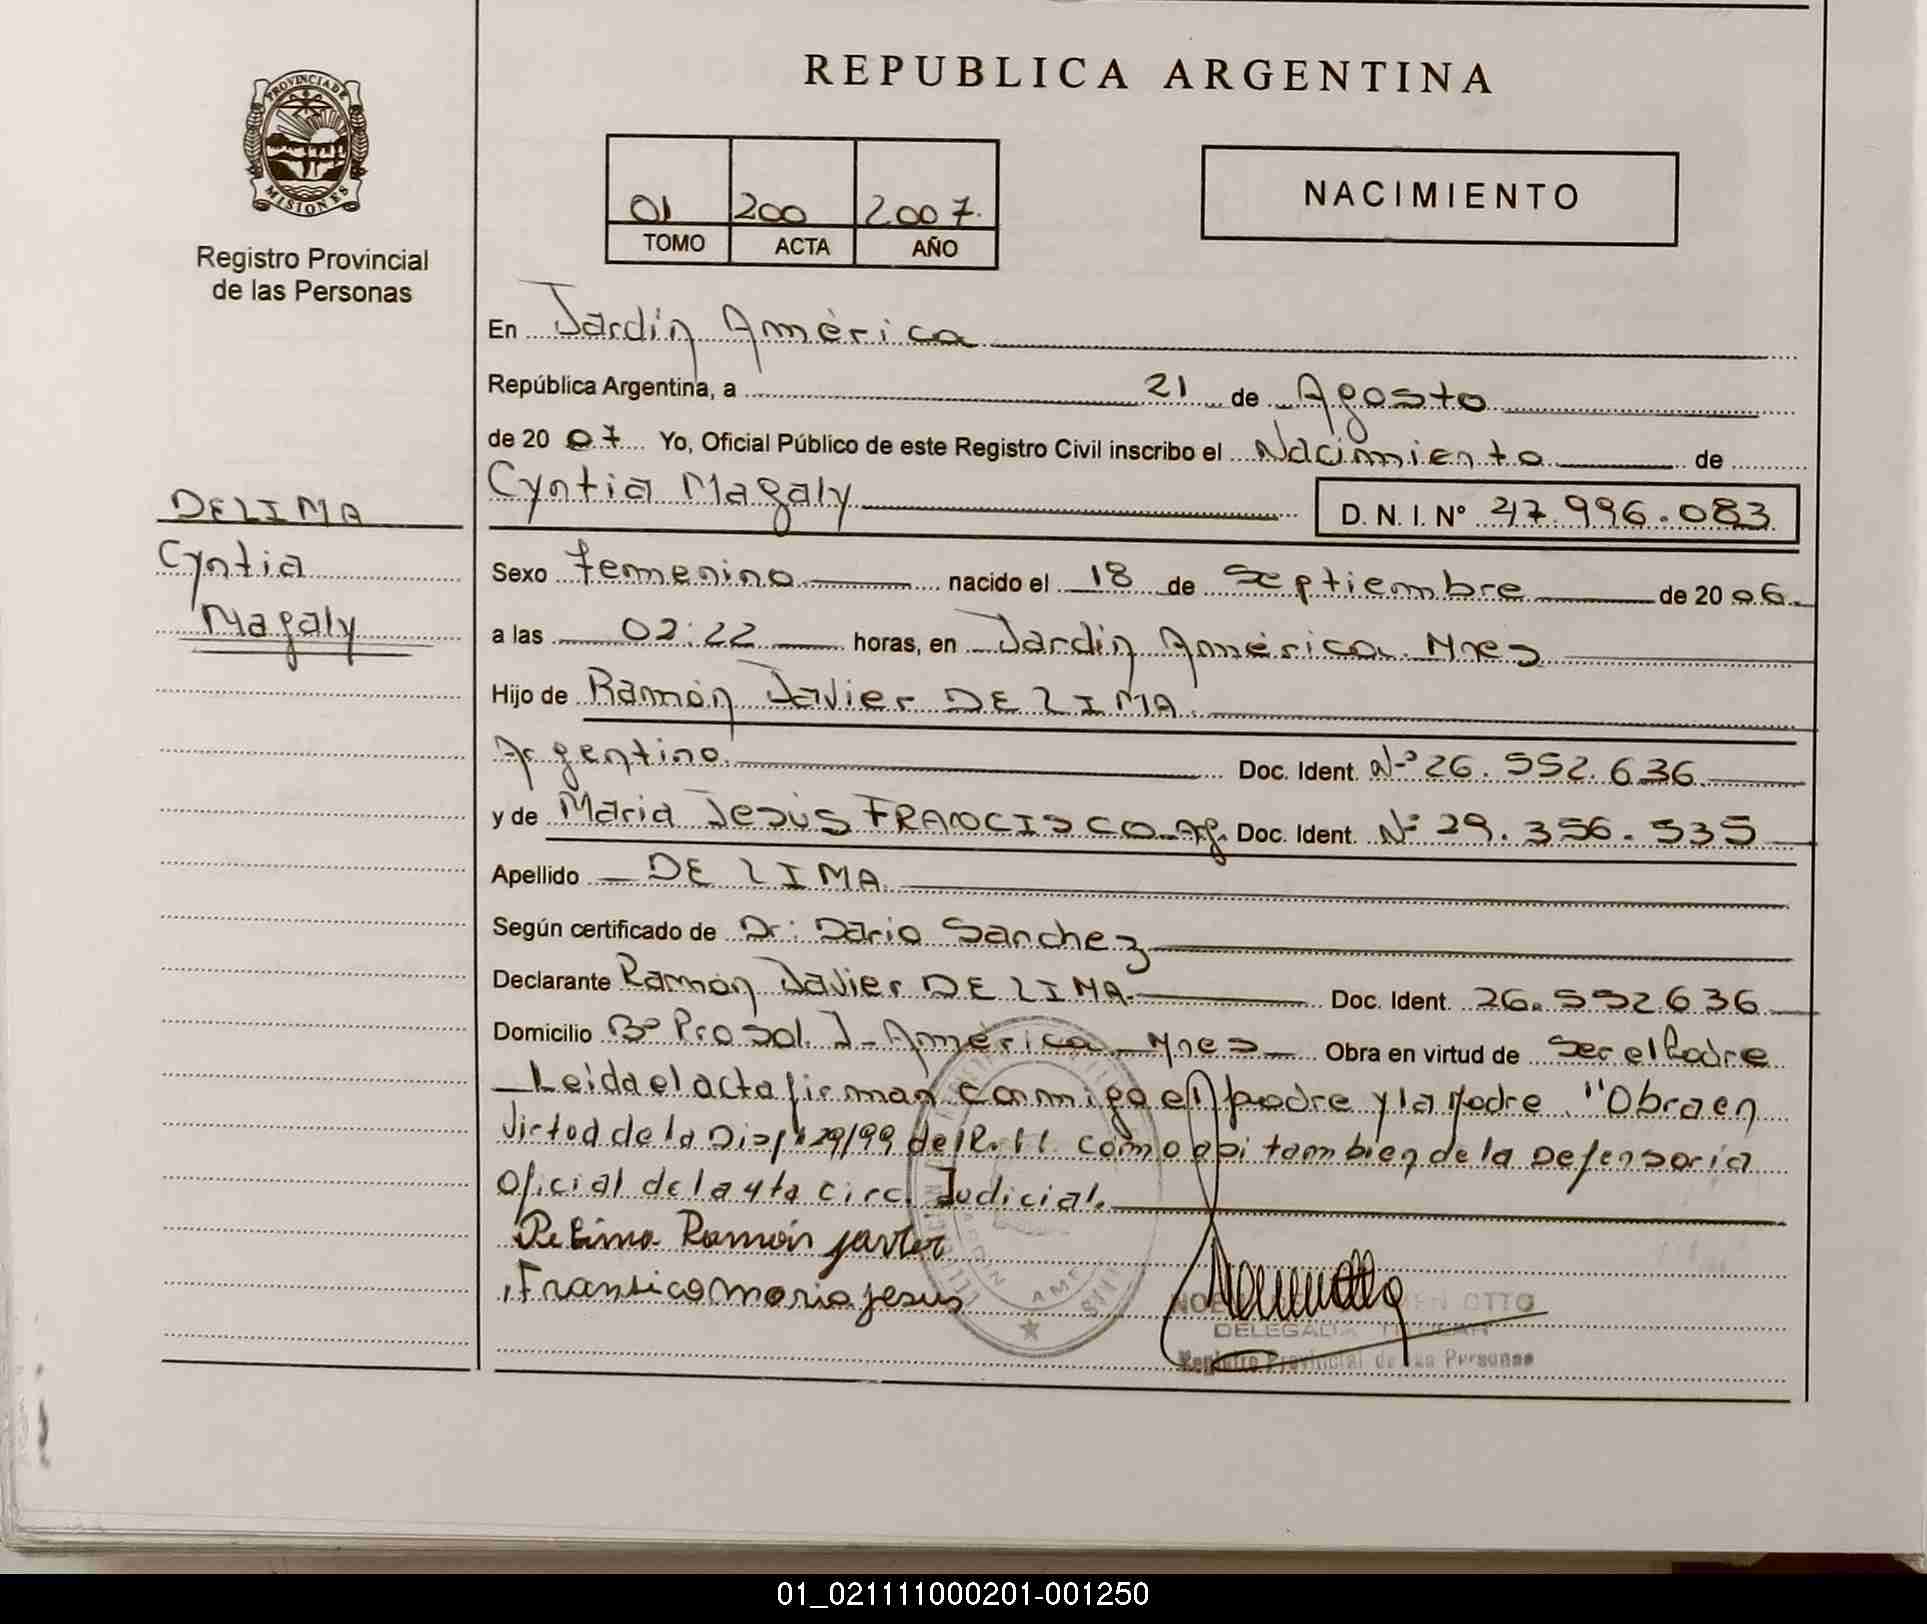 REPUBLICA ARGENTINA
PROVINCIA DE
MISIONES
Registro Provincial
de las Personas
01 200 2007.
TOMO ACTA AÑO
NACIMIENTO
En Jardín América
República Argentina, a 21 de Agosto
de 20 07 Yo, Oficial Público de este Registro Civil inscribo el Nacimiento de
Cyntia Magaly D. N. I. N° 47.996.083
DE LIMA
Cyntia
Magaly
Sexo Femenino nacido el 18 de Septiembre de 20 06.
a las 02:22 horas, en Jardín América. Mnes
Hijo de Ramón Javier DE LIMA
Argentino. Doc. Ident. N° 26.552.636
y de Maria Jesús FRANCISCO Arg. Doc. Ident. N° 29.356.535
Apellido DE LIMA
Según certificado de Dr: Dario Sanchez
Declarante Ramón Javier DE LIMA. Doc. Ident. 26.552.636
Domicilio B° Prosol. J- América Mnes Obra en virtud de Ser el Padre
Leida el acta firman conmigo el padre y la Madre. "Obra en
virtud de la Disp. 29/99 del como asi tambien de la Defensoria
Oficial de la 4ta Circ. Judicial.
De Lima Ramón javier
Fransico maria jesus
OTTO
DELEGADA TITULAR
Registro Provincial de las Personas
01_021111000201-001250